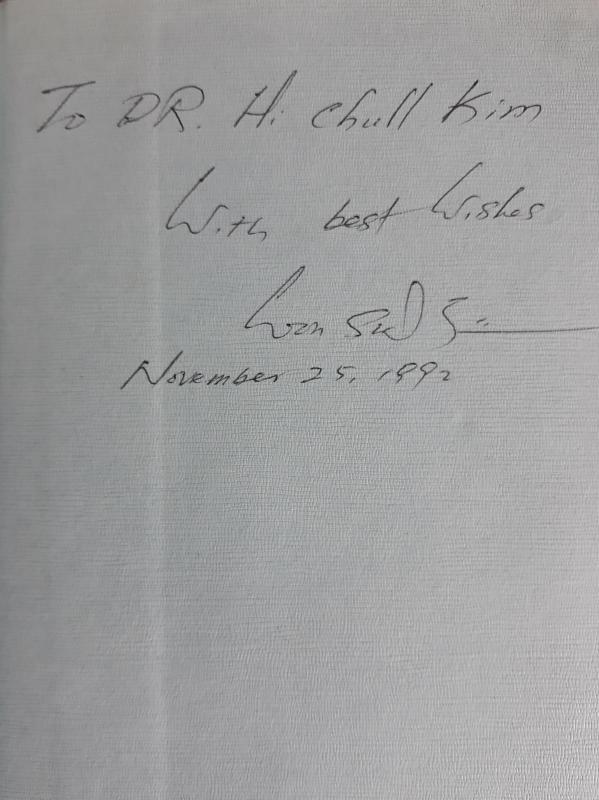 To DR. Hi Chull Kim
With best Wishes
Won Suk
November 25, 1992